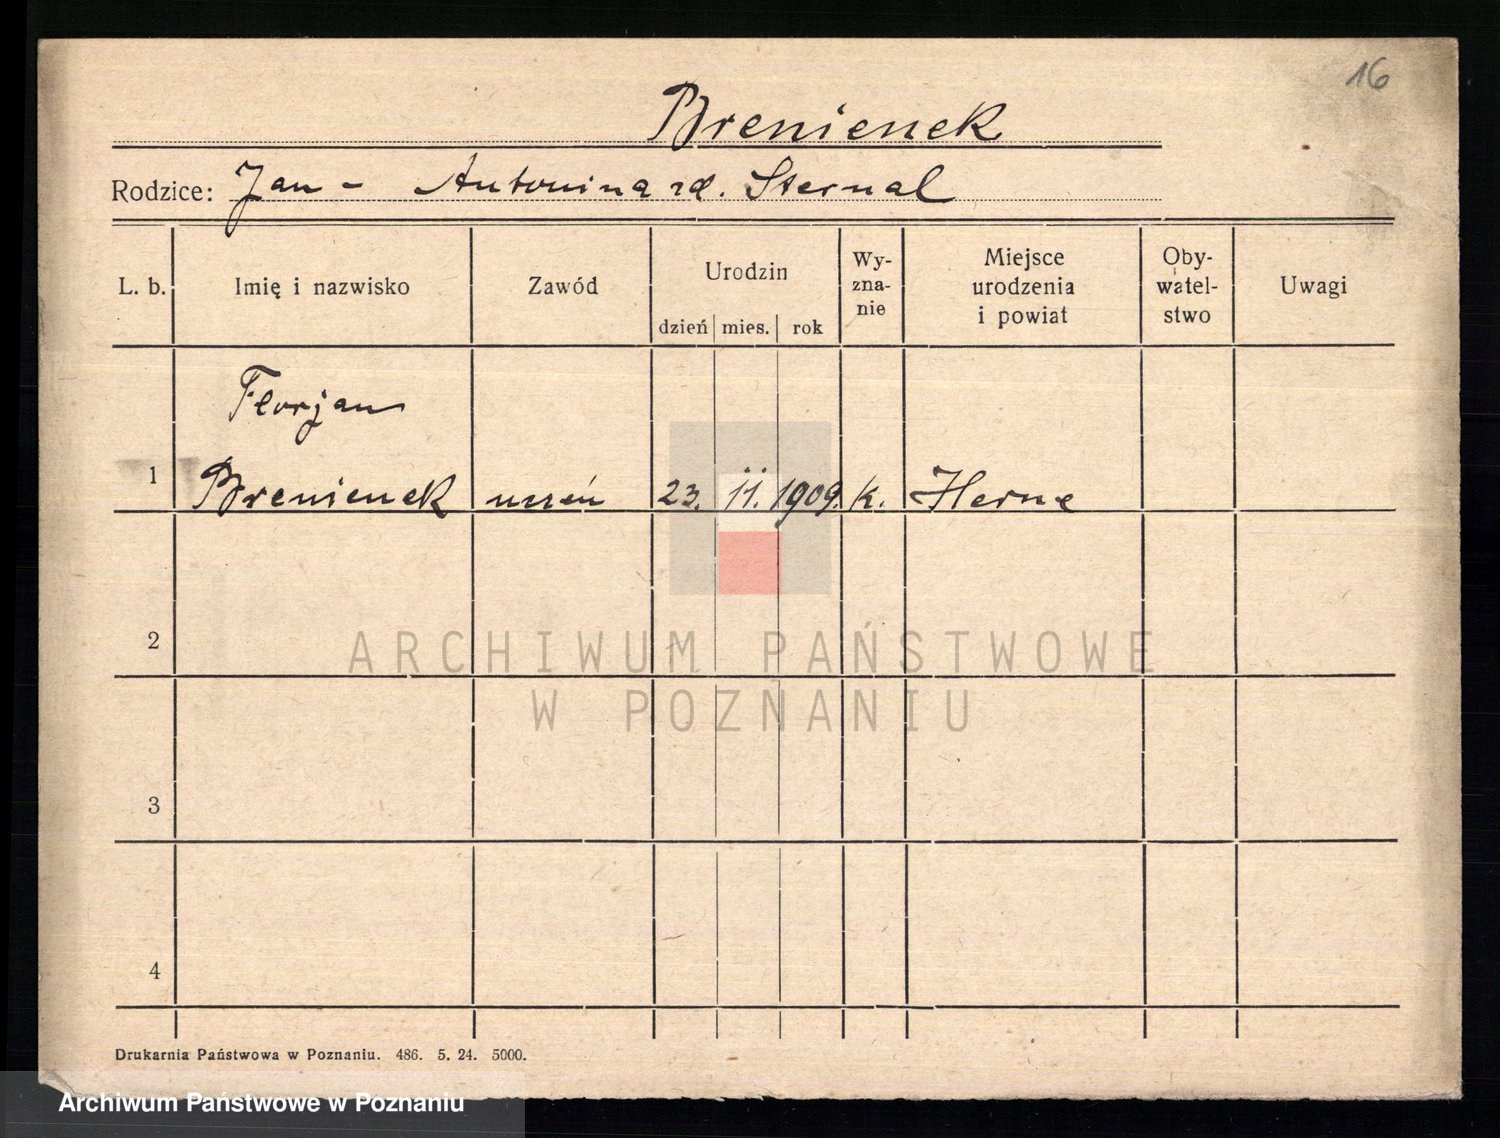 16
Brenienek
Rodzice: Jan - Antonina rd. Sternal
L. b.
Imię i nazwisko
Zawód
Urodzin
dzień mies. rok
Wy-
zna-
nie
Miejsce
urodzenia
i powiat
Oby-
watel-
stwo
Uwagi
Florjan
1 Brenienek uczeń 23. 11. 1909. k. Herne
2
ARCHIWUM PAŃSTWOWE
W POZNANIU
3
4
Drukarnia Państwowa w Poznaniu. 486. 5. 24. 5000.
Archiwum Państwowe w Poznaniu